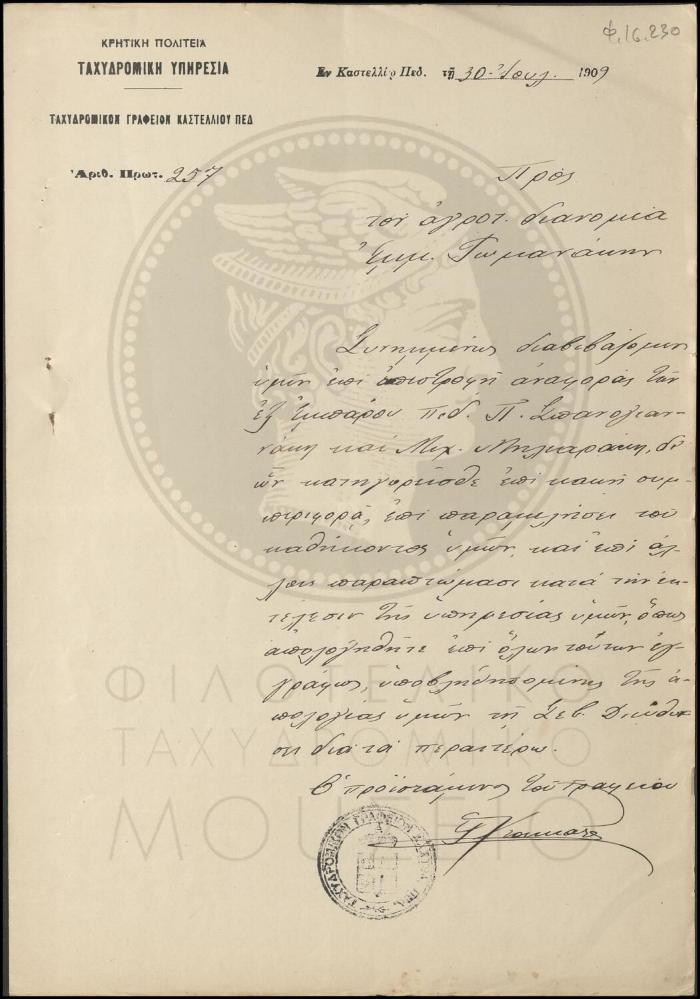 φ.16.230
ΚΡΗΤΙΚΗ ΠΟΛΙΤΕΙΑ
ΤΑΧΥΔΡΟΜΙΚΗ ΥΠΗΡΕΣΙΑ
Εν Καστελλίῳ Πεδ. τῇ 30 Ἰουλ. 1909
ΤΑΧΥΔΡΟΜΙΚΟΝ ΓΡΑΦΕΙΟΝ ΚΑΣΤΕΛΛΙΟΥ ΠΕΔ
Ἀριθ. Πρωτ. 257
Πρὸς
τὸν ἀγροτ. διανομέα
Ἐμμ. Τωμανάκην
Συνημμένως διαβιβάζομεν
ὑμῖν ἐπὶ ἐπιστροφῇ ἀναφορὰς τῶν
ἐξ Ἐμπάρου Πεδ. Π. Σπανογιαν-
νάκη καὶ Μιχ. Μηλιαράκη, δι'
ὧν κατηγορεῖσθε ἐπὶ κακῇ συμ-
περιφορᾷ, ἐπὶ παραμελήσει τοῦ
καθήκοντος ὑμῶν, καὶ ἐπὶ ἄλ-
λοις παραπτώμασι κατὰ τὴν ἐκ-
τέλεσιν τῆς ὑπηρεσίας ὑμῶν, ὅπως
ἀπολογηθῆτε ἐπὶ ὅλων τούτων ἐγ-
γράφως, ὑποβληθησομένης τῆς ἀ-
πολογίας ὑμῶν τῇ Σεβ. Διευθύν
σει διὰ τὰ περαιτέρω.
Ὁ προϊστάμενος τοῦ Γραφείου
ΤΑΧΥΔΡΟΜΙΚΟΝ ΓΡΑΦΕΙΟΝ ΠΕΔ.
ΦΙΛΟΤΕΛΙΚΟ
ΤΑΧΥΔΡΟΜΙΚΟ
ΜΟΥΣΕΙΟ